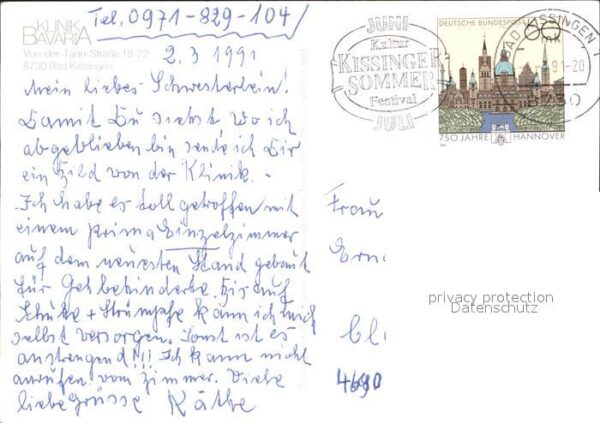 Tel. 0971-829-104/
KLINIK
BAVARIA
Von-der-Tann-Straße 18-22
8730 Bad Kissingen
2.3 1991
Mein liebes Schwesterlein!
Damit Du siehst wo ich
abgeblieben bin sende ich Dir
ein Bild von der Klinik. -
Ich habe es toll getroffen mit
einem prima Einzelzimmer
auf dem neuesten Stand gebaut
für Gehbehinderte. Bis auf
Schuhe + Strümpfe kann ich mich
selbst versorgen. Sonst ist es
anstrengend!!! Ich kann nicht
anrufen vom Zimmer. Viele
liebe Grüsse Käthe
JUNI
Kultur
KISSINGER
SOMMER
Festival
JULI
DEUTSCHE BUNDESPOST
60
BAD KISSINGEN
91-20
8730
750 JAHRE HANNOVER
Frau
Ern
privacy protection
Datenschutz
4690